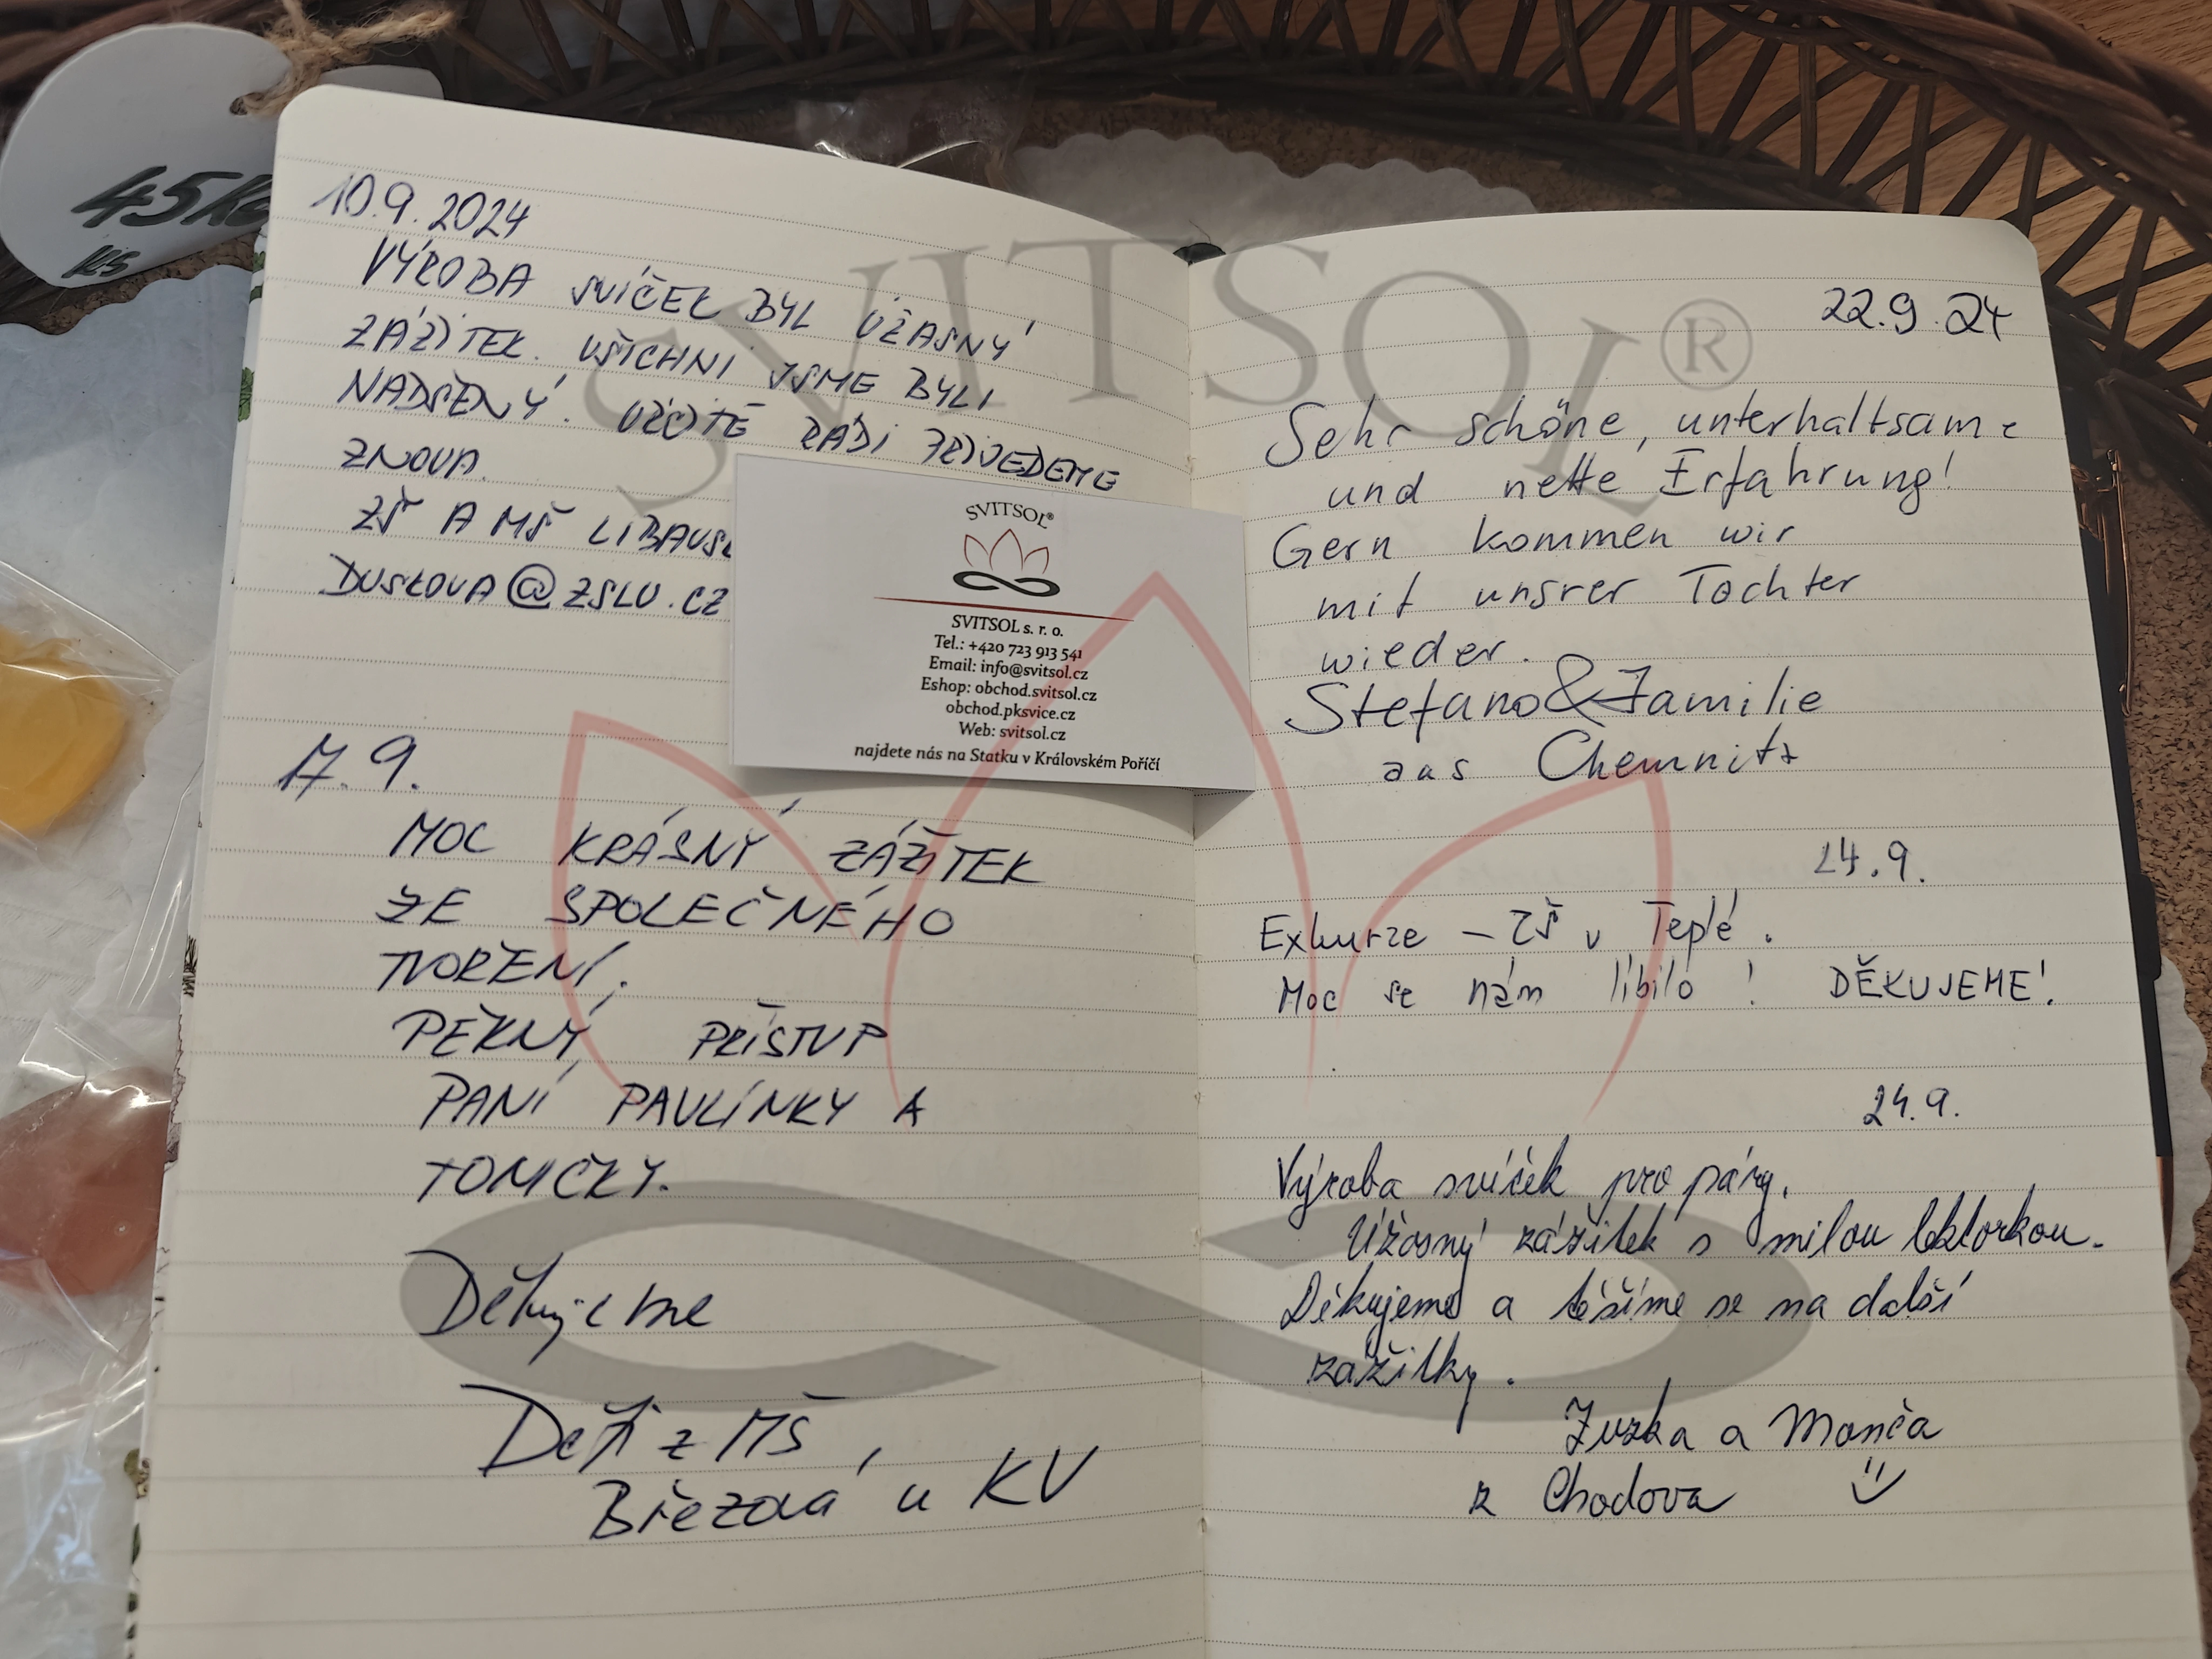 45Kč
KS
10.9.2024
VÝROBA SVÍČEK BYL ÚŽASNÝ
ZÁŽITEK. VŠICHNI JSME BYLI
NADŠENÝ. URČITĚ RÁDI PŘIJEDEME
ZNOVA.
ZŠ A MŠ LIBAVSK
DUSKOVA@ZSLU.CZ
17.9.
MOC KRÁSNÝ ZÁŽITEK
ZE SPOLEČNÉHO
TVOŘENÍ.
PĚKNÝ PŘÍSTUP
PANÍ PAVLÍNKY A
TOMČKY.
Děkujeme
Děti z MŠ,
Březová u KV
SVITSOL®
SVITSOL s. r. o.
Tel.: +420 723 913 541
Email: info@svitsol.cz
Eshop: obchod.svitsol.cz
obchod.pksvice.cz
Web: svitsol.cz
najdete nás na Statku v Královském Poříčí
SVITSOL®
22.9.24
Sehr schöne, unterhaltsame
und nette Erfahrung!
Gern kommen wir
mit unsrer Tochter
wieder.
Stefano & Familie
aus Chemnitz
24.9.
Exkurze – ZŠ v Teplé.
Moc se nám líbilo! DĚKUJEME!
24.9.
Výroba svíček pro páry.
Úžasný zážitek s milou lektorkou.
Děkujeme a těšíme se na další
zažitky.
Zuzka a Monča
z Chodova